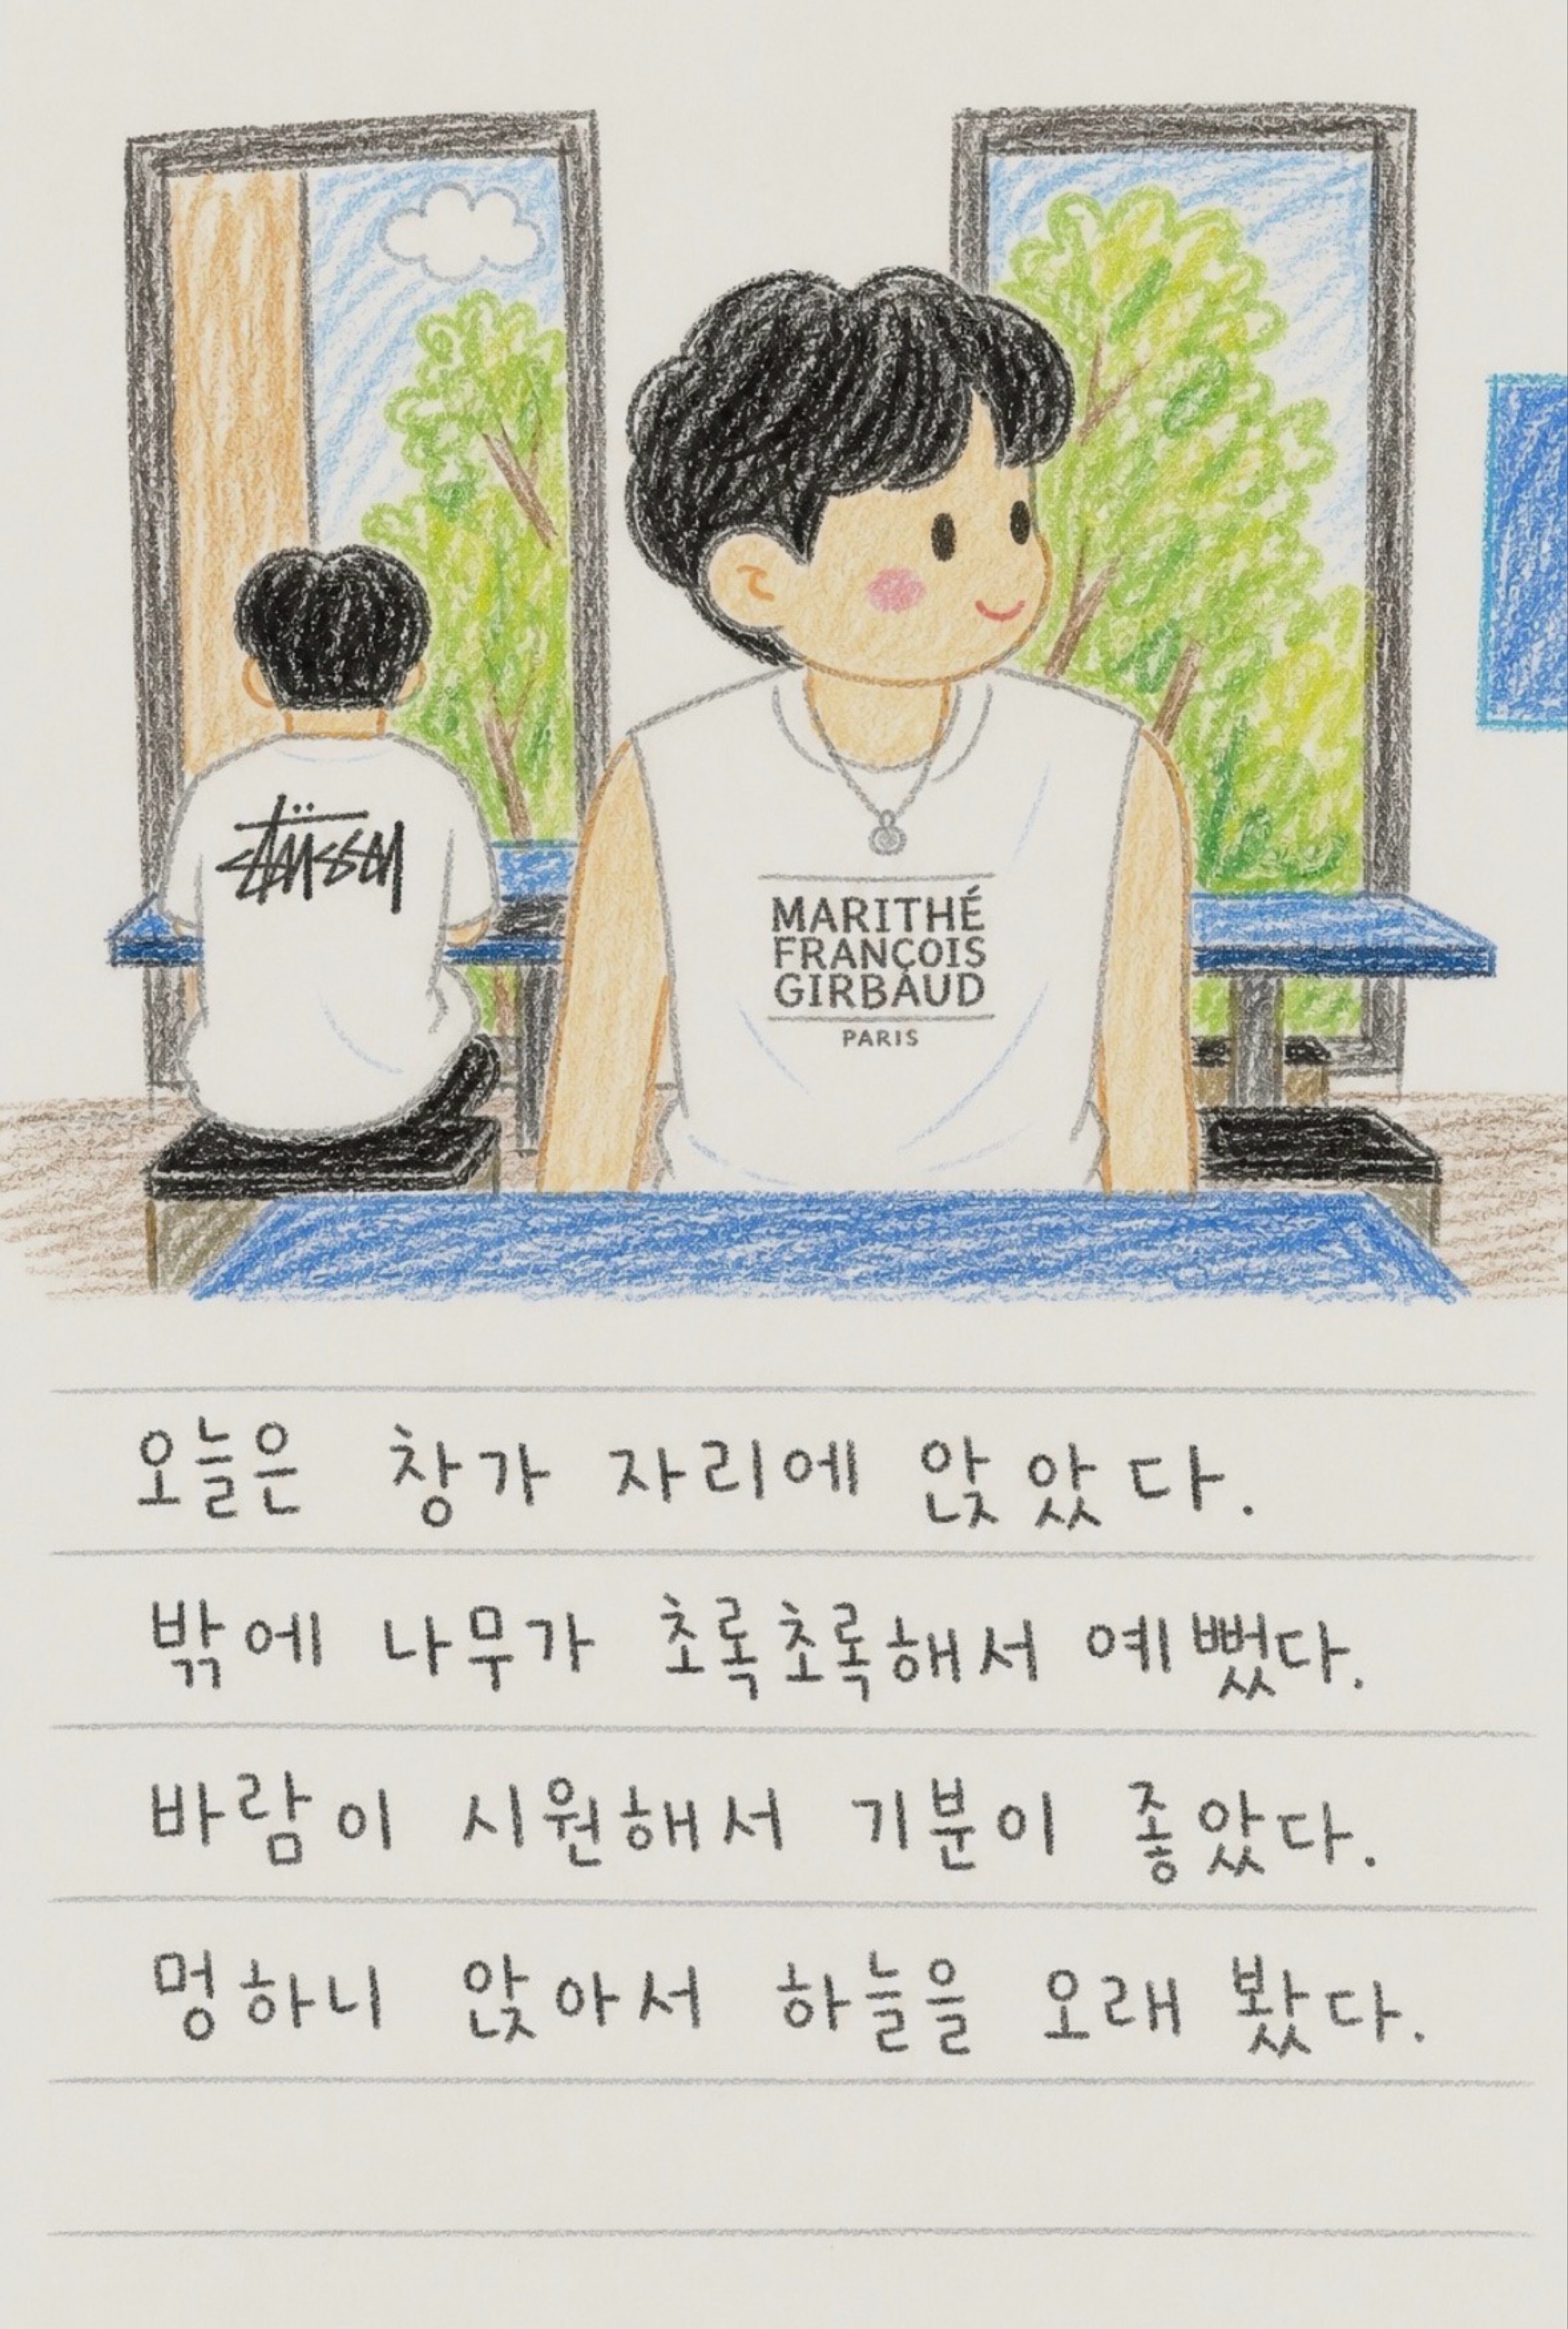 STÜSSY
MARITHÉ
FRANÇOIS
GIRBAUD
PARIS
오늘은 창가 자리에 앉았다.
밖에 나무가 초록초록해서 예뻤다.
바람이 시원해서 기분이 좋았다.
멍하니 앉아서 하늘을 오래 봤다.